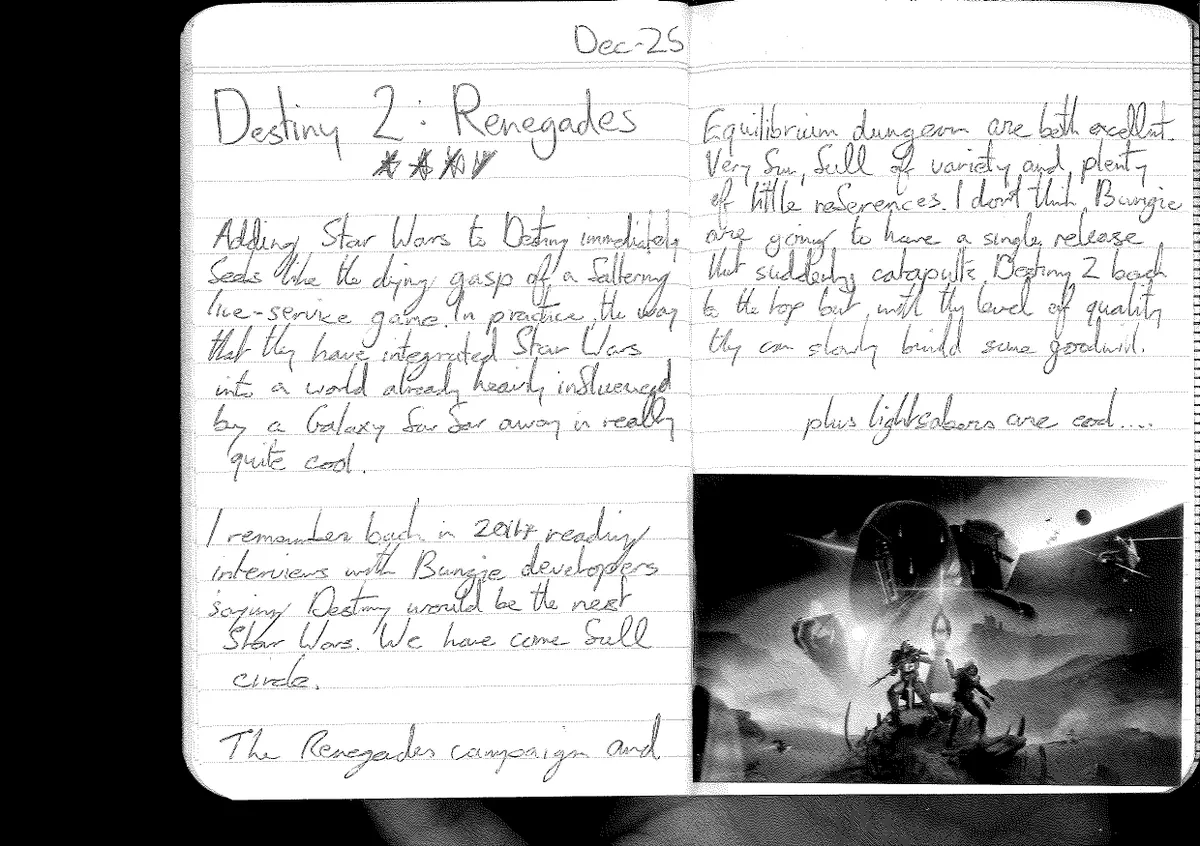 Dec-25
Destiny 2: Renegades
Adding Star Wars to Destiny immediately
seems like the dying gasp of a faltering
live-service game. In practice, the way
that they have integrated Star Wars
into a world already heavily influenced
by a Galaxy far far away is really
quite cool.
I remember back in 2014 reading
interviews with Bungie developers
saying Destiny would be the next
Star Wars. We have come full
circle.
The Renegades campaign and
Equilibrium dungeon are both excellent.
Very fun, full of variety and plenty
of little references. I don't think Bungie
are going to have a single release
that suddenly catapults Destiny 2 back
to the top but with this level of quality
they can slowly build some goodwill.
plus lightsabers are cool....